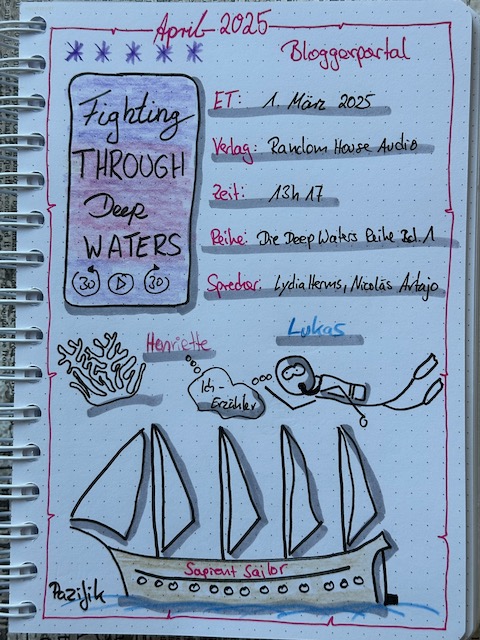 April 2025
Bloggerportal
Fighting
THROUGH
Deep
WATERS
30 30
ET: 1. März 2025
Verlag: Random House Audio
Zeit: 13h 17
Reihe: Die Deep Waters Reihe Bd. 1
Sprecher: Lydia Herms, Nicolás Artajo
Henriette
Lukas
Ich-
Erzähler
Sapient Sailor
Pazifik